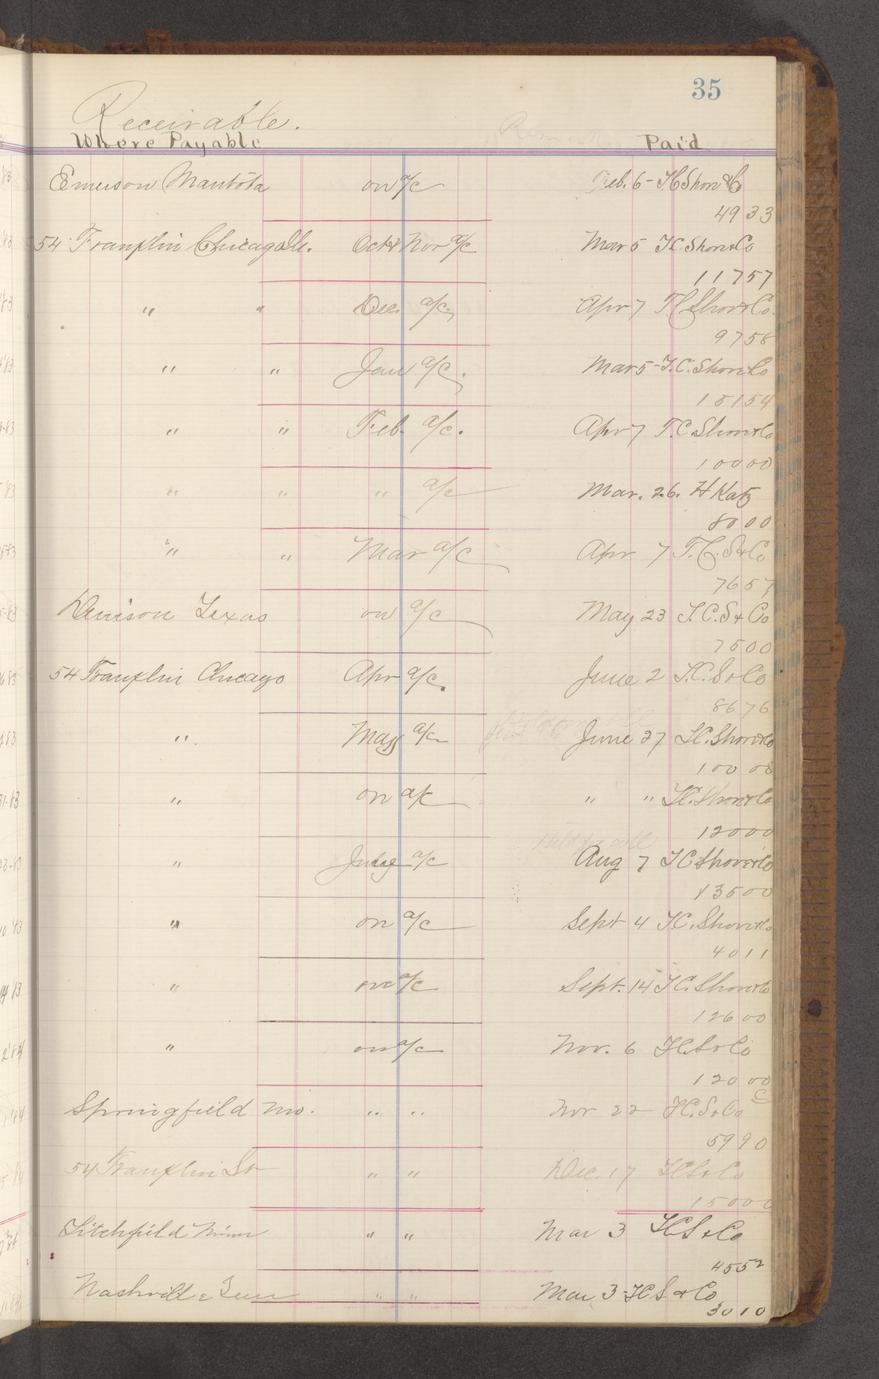 35
Receivable.
Where Payable Paid
Emerson Manitoba on a/c Feb. 6 - T.C. Shore & Co
4933
54 Franklin Chicago Ills. Oct & Nov a/c Mar 5 T.C. Shore & Co
11757
" " Dec. a/c Apr 7 T.C. Shore & Co.
9758
" " Jan a/c. Mar 5 - T.C. Shore & Co
15154
" " Feb. a/c. Apr 7 T.C. Shore & Co
10000
" " " a/c Mar. 26. H Katz
8000
" " Mar a/c Apr 7 T.C. S & Co
7657
Denison Texas on a/c May 23 T.C. S & Co
7500
54 Franklin Chicago Apr a/c. June 2 T.C. S & Co
8676
" May a/c June 27 T.C. Shore & Co
10000
" on a/c " " T.C. Shore & Co
12000
" a/c Aug 7 T.C. Shore & Co
13500
" on a/c Sept 4 T.C. Shore & Co
4011
" on a/c Sept. 14 T.C. Shore & Co
12600
" on a/c Nov. 6 T.C. S & Co
12000
Springfield Mo. " " Nov 22 T.C. S & Co
5990
54 Franklin St " " Dec. 17 T.C. S & Co
15000
Litchfield Minn " " Mar 3 T.C. S & Co
4552
Nashville Tenn " " Mar 3 T.C. S & Co
3010